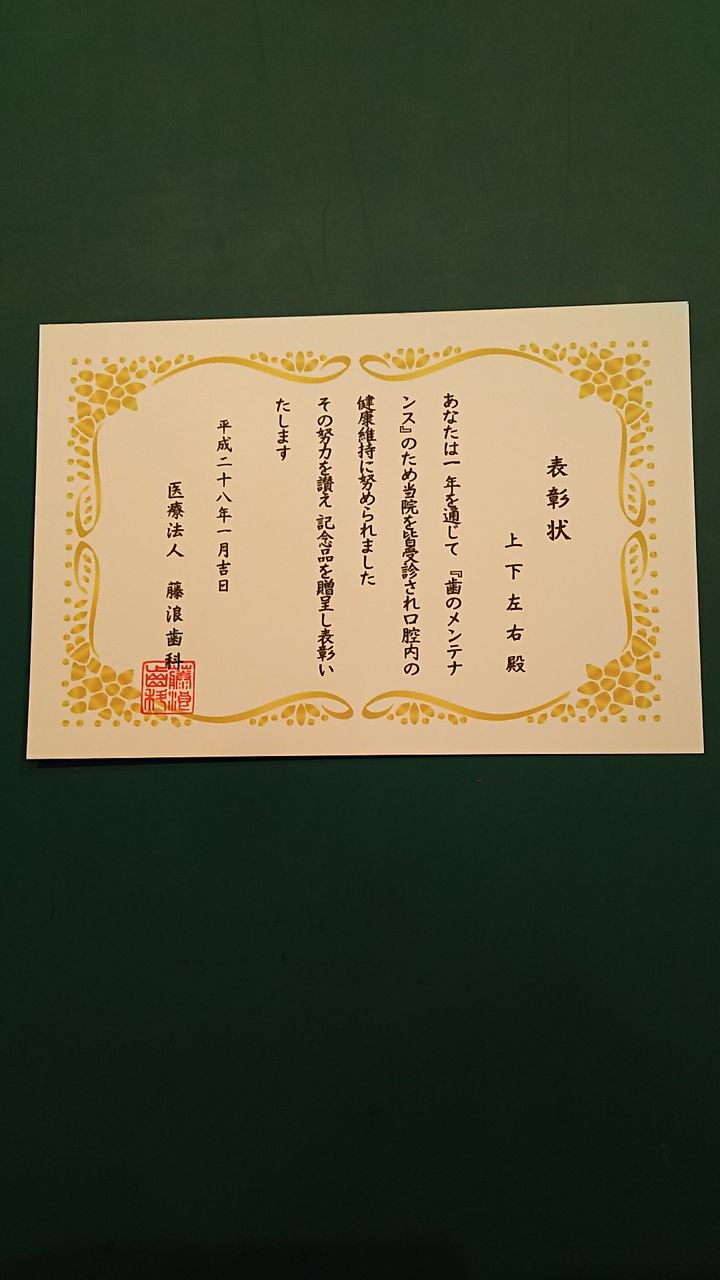 表彰状
上下左右殿
あなたは一年を通じて『歯のメンテナ
ンス』のため当院を皆受診され口腔内の
健康維持に努められました
その努力を讃え記念品を贈呈し表彰い
たします
平成二十八年一月吉日
医療法人 藤浪歯科
藤浪
歯科